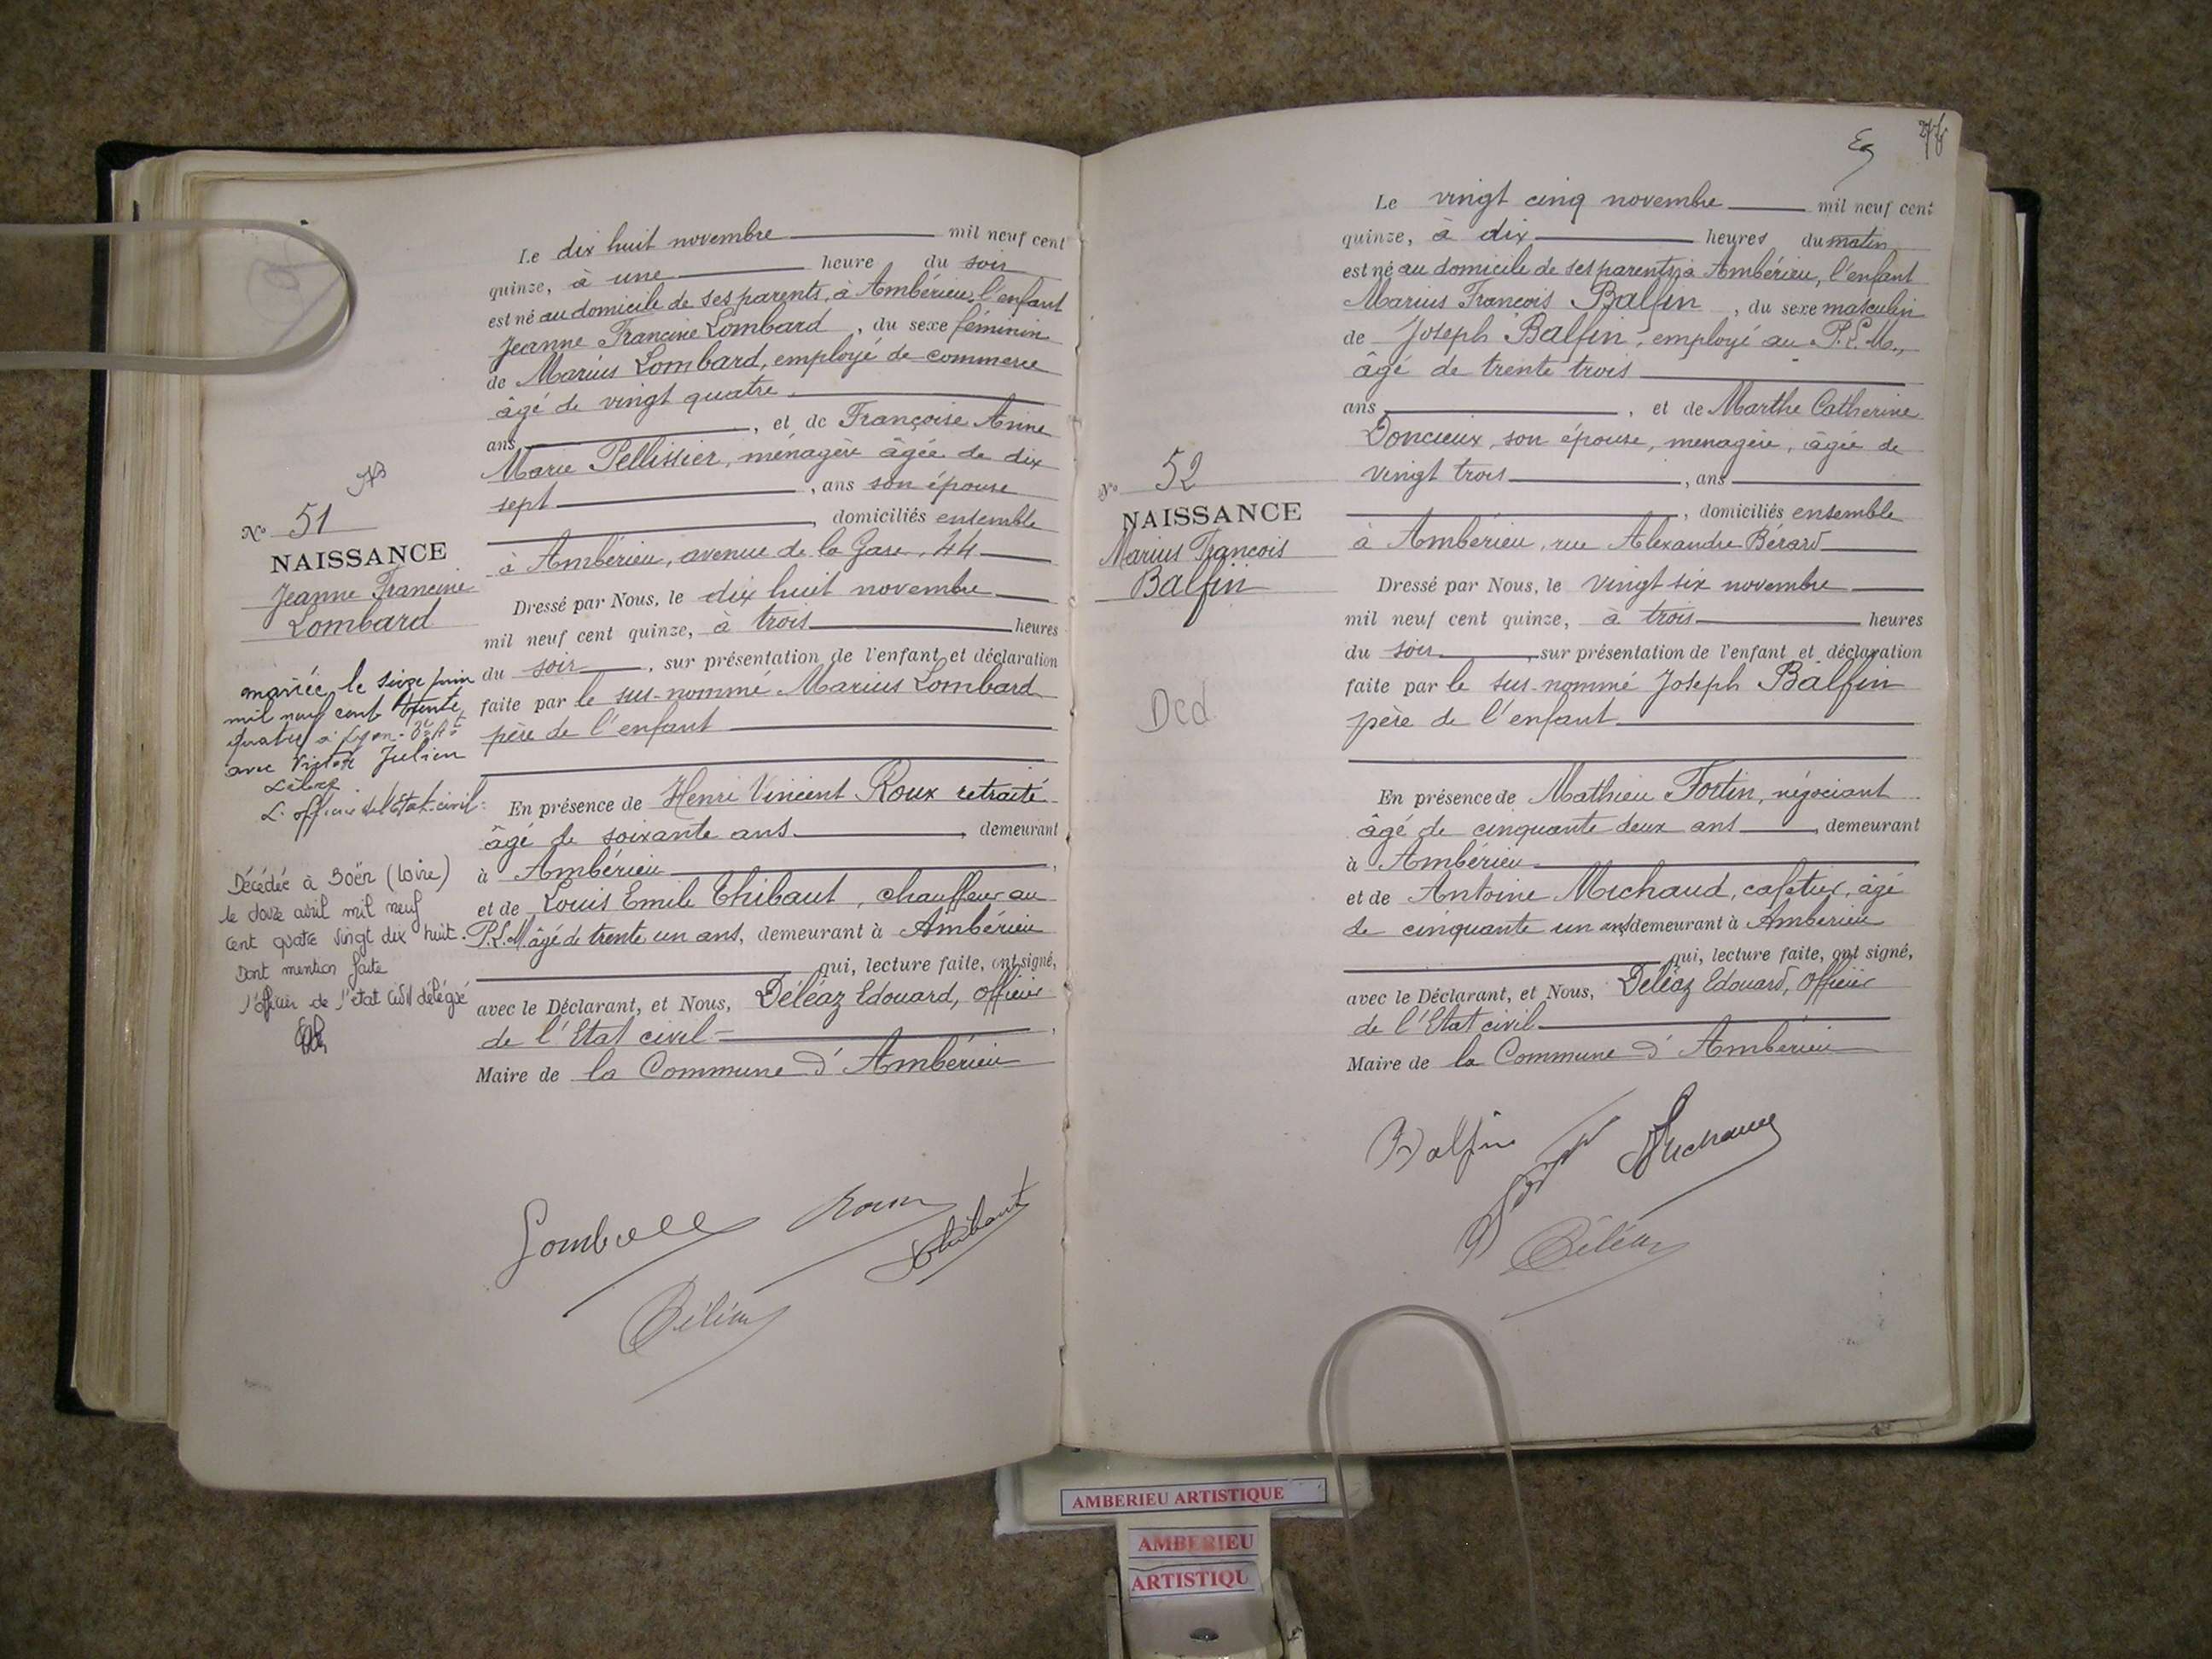 Le dix huit novembre mil neuf cent
quinze, à une heure du soir
est né au domicile de ses parents, à Ambérieu, l'enfant
Jeanne Francine Lombard, du sexe féminin
de Marius Lombard, employé de commerce
âgé de vingt quatre,
ans, et de Françoise Anne
Marie Pellissier, ménagère âgée de dix
sept, ans son épouse
, domiciliés ensemble
à Ambérieu, avenue de la Gare, 44
Dressé par Nous, le dix huit novembre
mil neuf cent quinze, à trois heures
du soir, sur présentation de l'enfant et déclaration
faite par le sus-nommé Marius Lombard
père de l'enfant
En présence de Henri Vincent Roux retraité
âgé de soixante ans, demeurant
à Ambérieu,
et de Louis Emile Thibaut, chauffeur au
P.L.M âgé de trente un ans, demeurant à Ambérieu
qui, lecture faite, ont signé,
avec le Déclarant, et Nous, Déléaz Edouard, Officier
de l'Etat civil,
Maire de la Commune d'Ambérieu
Lombard Roux
Thibaut
Déléaz
N° 51
NAISSANCE
Jeanne Francine
Lombard
mariée le seize juin
mil neuf cent trente
quatre à Lyon
avec Victor Julien
L'officier de l'Etat-civil:
Décédée à Boën (Loire)
le douze avril mil neuf
cent quatre vingt dix huit.
Dont mention faite
l'officier de l'état civil délégué
76
Le vingt cinq novembre mil neuf cent
quinze, à dix heures du matin
est né au domicile de ses parents à Ambérieu, l'enfant
Marius François Balfin, du sexe masculin
de Joseph Balfin, employé au P.L.M.,
âgé de trente trois
ans, et de Marthe Catherine
Doncieux, son épouse, ménagère, âgée de
vingt trois, ans
, domiciliés ensemble
à Ambérieu, rue Alexandre Bérard
Dressé par Nous, le vingt six novembre
mil neuf cent quinze, à trois heures
du soir, sur présentation de l'enfant et déclaration
faite par le sus-nommé Joseph Balfin
père de l'enfant
En présence de Mathieu Fortin, négociant
âgé de cinquante deux ans, demeurant
à Ambérieu
et de Antoine Michaud, cafetier, âgé
de cinquante un ans demeurant à Ambérieu
qui, lecture faite, ont signé,
avec le Déclarant, et Nous, Déléaz Edouard, Officier
de l'Etat civil
Maire de la Commune d'Ambérieu
Balfin Michaud
Déléaz
N° 52
NAISSANCE
Marius François
Balfin
Dcd
AMBERIEU ARTISTIQUE
AMBERIEU
ARTISTIQU